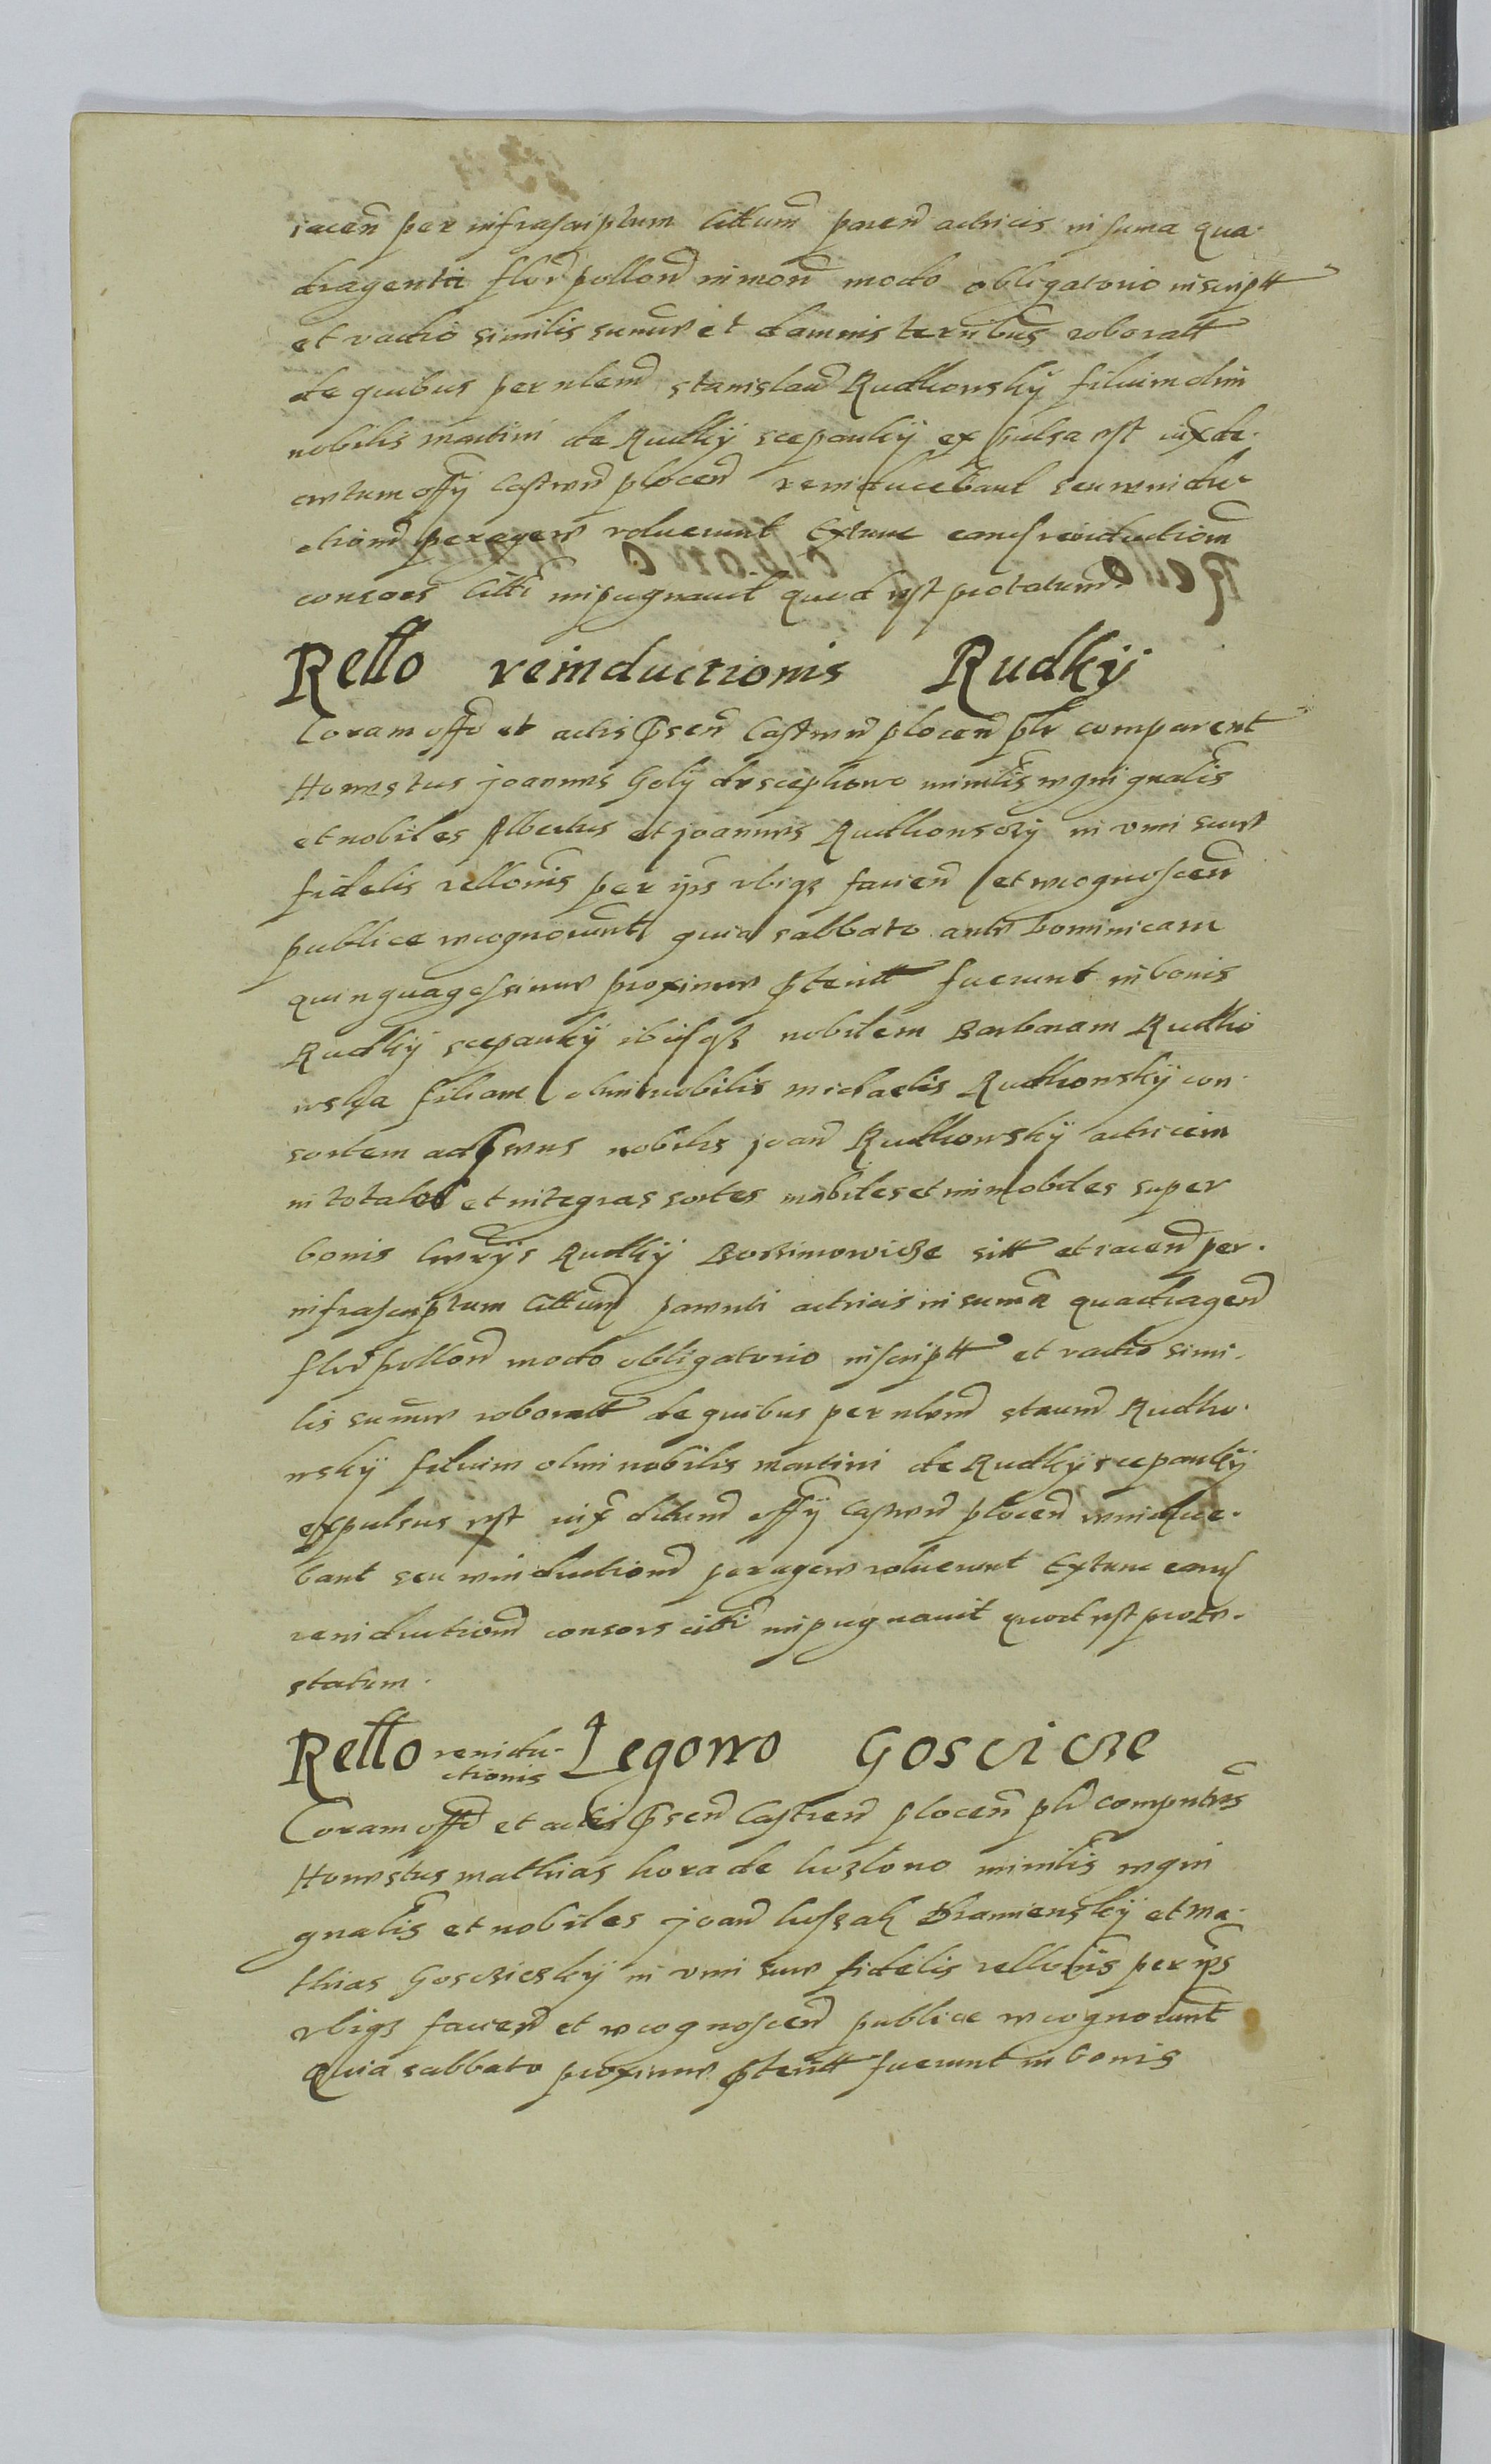 iacen per infrascriptum cittum paren actricis in suma qua-
dragenti flor pollon in mon modo obligatorio inscriptt
et vadio similis sume et damnis terribus roboratt
de quibus per nlem Stanislau Rudkowskÿ filium olim
nobilis Martini de Rudkÿ scepankÿ expulsa est iux de-
cretum offÿ Castren plocen reinducebant seu reindu-
ctionem peragere voluerunt Extunc eand reinductionem
consors citti impugnavit quod est protatum
Rello reinductionis Rudkÿ
Coram offo et actis psen Castren plocen plr comparent
Honestus Joannes Golÿ de scepkowo minrlis regni gnalis
et nobiles Albertus et Joannes Rudkowsczÿ in vim sue
fidelis rellonis per ips vbiqz facien et recognoscen
publice recognorunt quia sabbato ante Dominicam
quinquagesime proxime pteritt fuerunt in bonis
Rudkÿ scepankÿ ibiqz nobilem Barbaram Rudko
wska filiam olim nobilis Michaelis Rudkowskÿ con-
sortem nobilis Joan Rudkowskÿ actricem
in totales et integras sortes mobiles et immobiles super
bonis Rudkÿ sitt et iacen per-
infrascriptum cittum parenti actricis in summa quadragen
flor pollon modo obligatorio inscriptt et vadio simi-
lis summe roboratt de quibus per nlem Staum Rudko-
wskÿ filium olim nobilis Martini de Rudkÿ scepankÿ
expulsus est iux ditum offÿ Castren plocen reinduce-
bant seu reinductionem peragere voluerunt Extunc eand
reinductionem consors citti impugnavit quod est prote-
statum.
Rello reindu-
ctionis Legowo Goscicze
Coram offo et actis psen Castren plocen plr compntes
Honestus Mathias kora de kozlowo minrlis regni
gnalis et nobiles Joan Kramienskÿ et Ma-
thias Gosczickÿ in vim sue fidelis rellonis per ips
vbiqz facien et recognoscen publice recognorunt
Quia sabbato proxime pteritt fuerunt in bonis